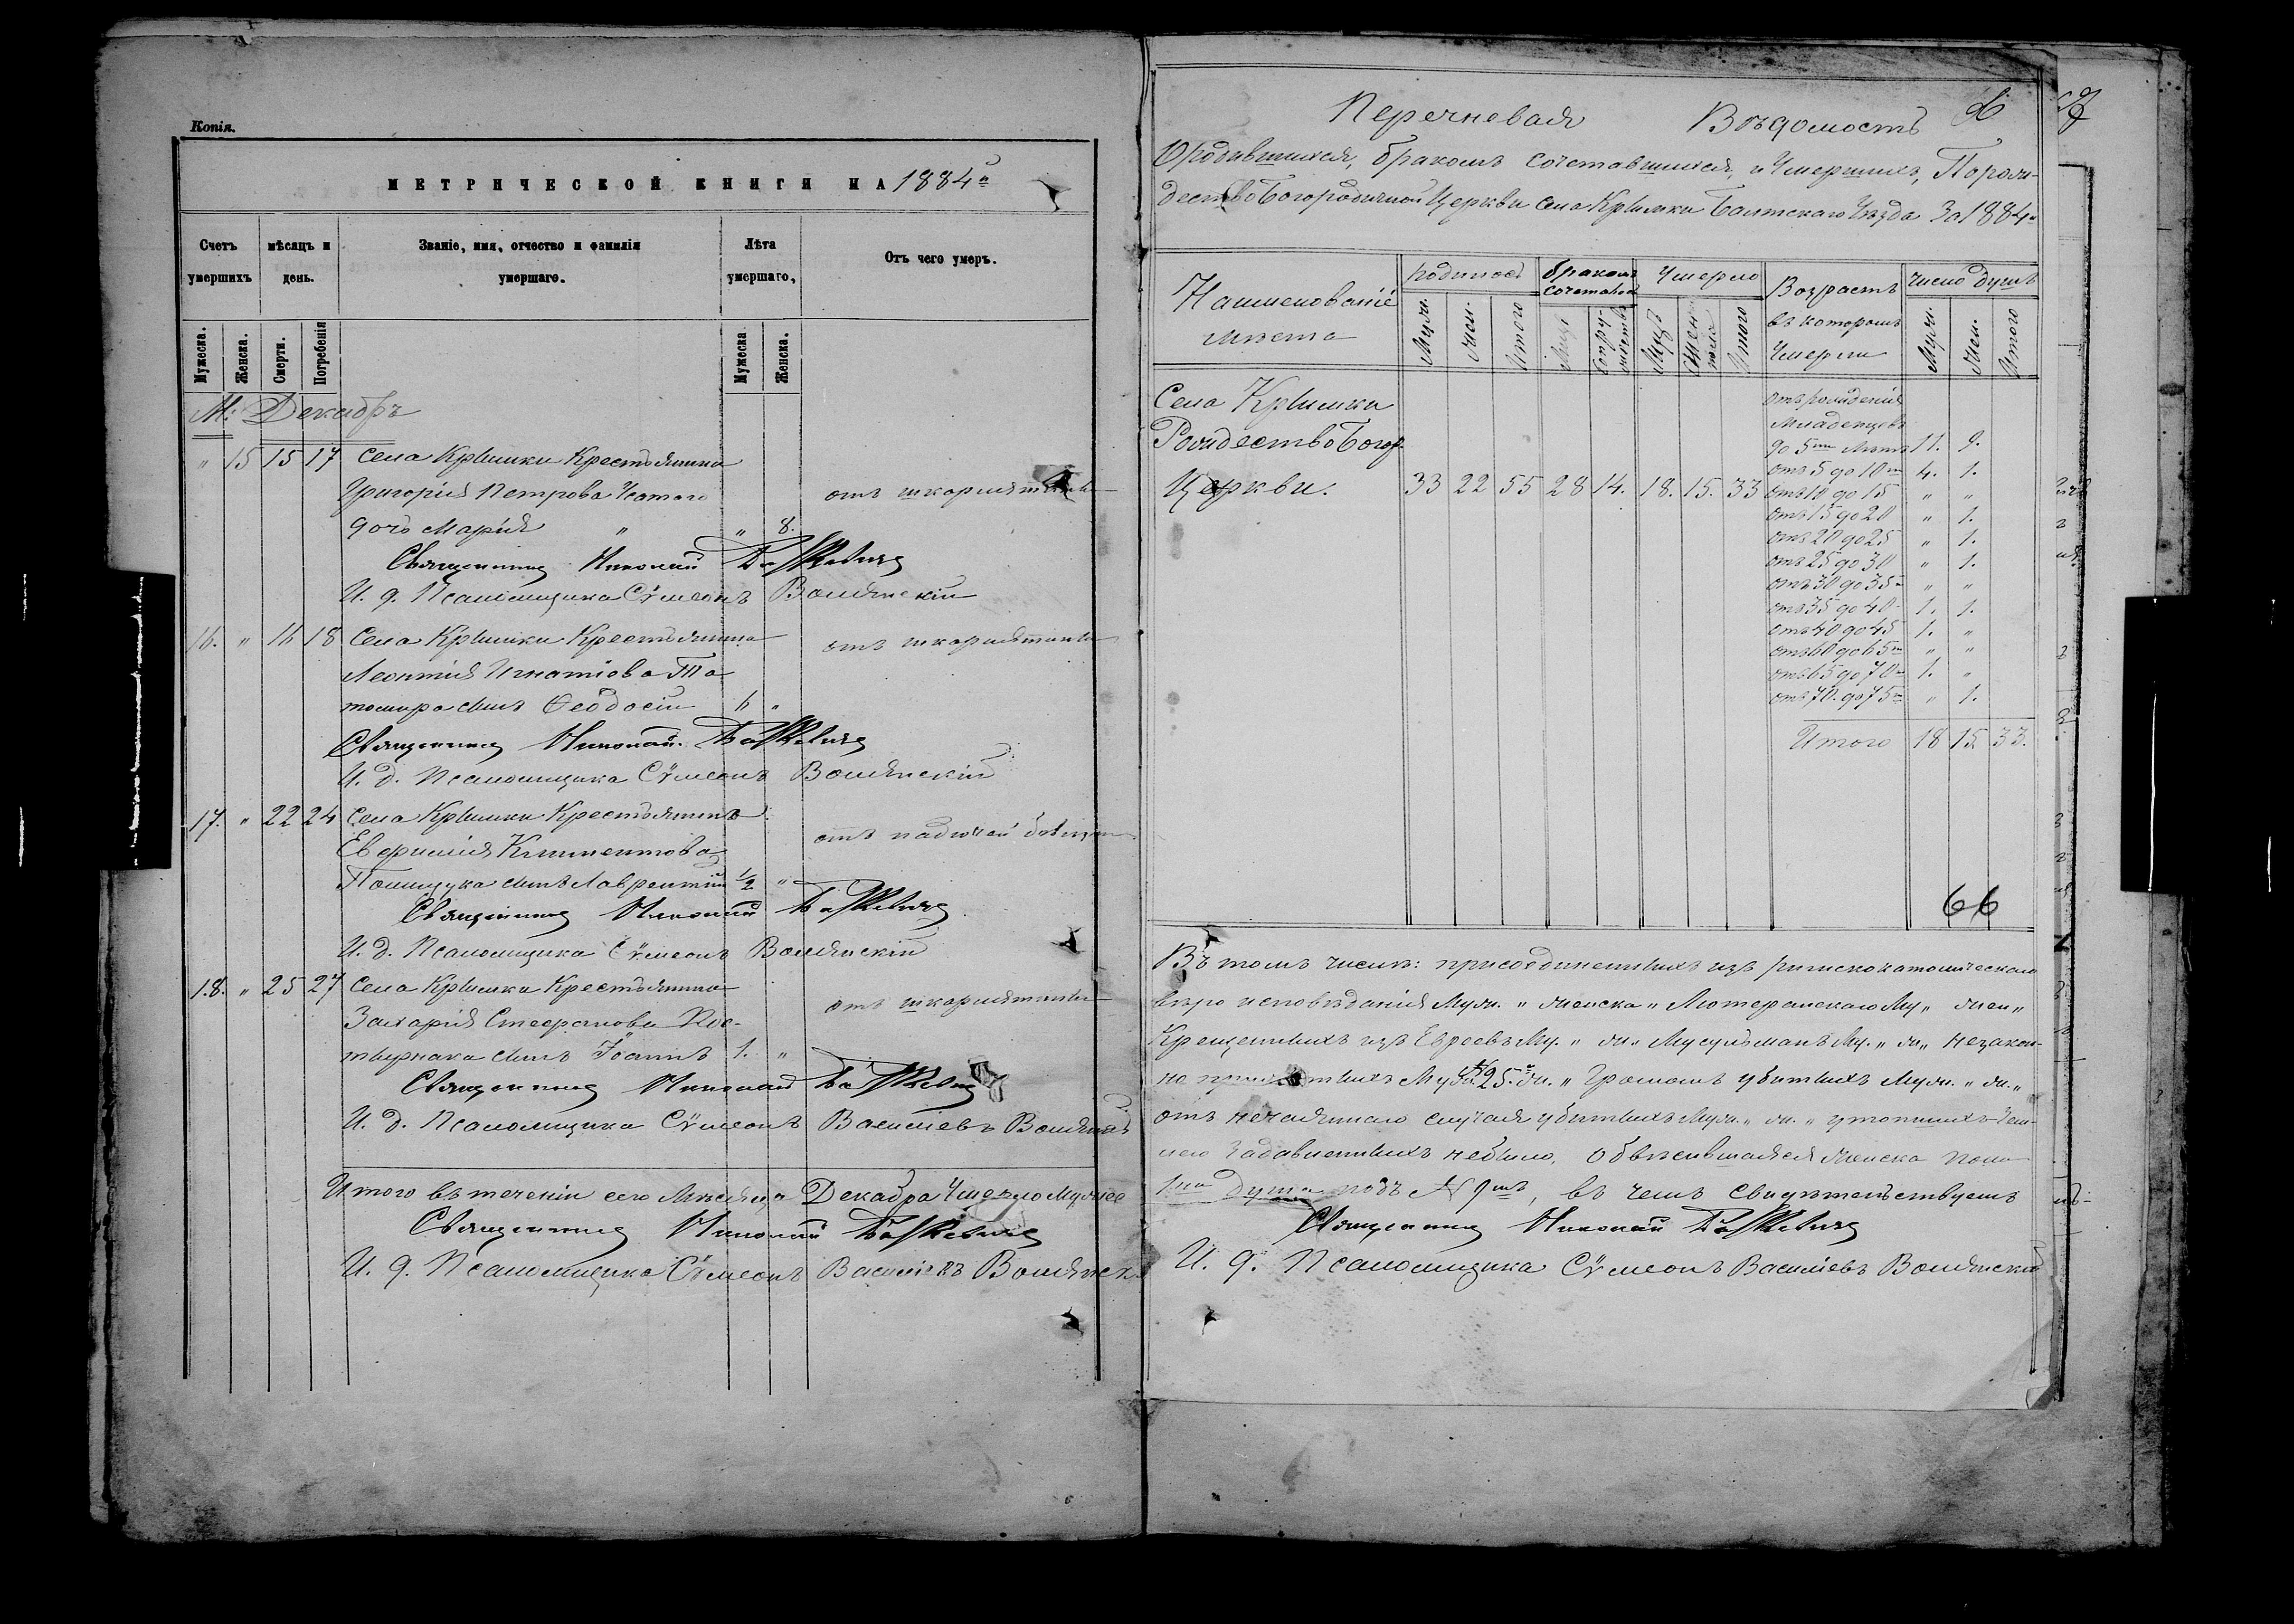 Копія.
МЕТРИЧЕСКОЙ КНИГИ НА 1884 г̃
Счетъ умершихъ
мѣсяцъ и день.
Званіе, имя, отчество и фамилія умершаго.
Лѣта умершаго,
Отъ чего умеръ.
Мужеска.
Женска.
Смерти.
Погребенія
Мужеска
Женска.
М: Декабрь
" 15 15 17 Села Крымки Крестьянина
Григорія Петрова
отъ шкарлятины
дочь Марія " " 8.
Священникъ Николай
И. д. Псаломщика Сѵмеонъ Волянскій
16. " 16 18 Села Крымки Крестьянина
отъ шкарлятины
Леонтія Игнатіова Та-
томира сынъ Ѳеодосій 6 "
Священникъ Николай
И. д. Псаломщика Сѵмеонъ Волянскій
17. " 22 24 Села Крымки Крестьянина
отъ падючей болѣзни
Климентова
Полищука сынъ Лаврентій 1/2 "
Священникъ Николай
И. д. Псаломщика Сѵмеонъ Волянскій
18. " 25 27 Села Крымки Крестьянина
отъ шкарлятины
Захарія Стефанова Кос-
тырнака сынъ Іоаннъ 1. "
Священникъ Николай
И. д. Псаломщика Сѵмеонъ Василіевъ Волянскій
Итого въ теченіи сего Мѣсяца Декабра Умерло
Священникъ Николай
И. д. Псаломщика Сѵмеонъ Василіевъ Волянск
Перечневая Вѣдомость
О родившихся, бракомъ сочетавшихся, и Умершихъ, По рож-
дество Богородичной Церкви села Крымки Балтскаго Уѣзда За 1884 г
Наименованіе мѣста
родилось
бракомъ сочетавш
Умерло
Возрастъ въ которомъ Умерли
число душъ
Муж.
Жен.
Итого
Лицъ
Супру-жествъ
Муж
Жен
Итого
Муж.
Жен.
Итого
Села Крымки
Рождество Богор
Церкви. 33 22 55 28 14. 18. 15. 33
отъ рожденія
Младенцевъ
до 5ти Лѣтъ 11. 9.
отъ 5 до 10ти 4. 1.
отъ 10 до 15 " "
отъ 15 до 20 " 1.
отъ 20 до 25 " 1.
отъ 25 до 30 " 1.
отъ 30 до 35 " "
отъ 35 до 40 1. 1.
отъ 40 до 45 1. "
отъ 60 до 65 " "
отъ 65 до 70 1. "
отъ 70. до 75 " 1.
Итого 18 15 33.
66
Въ томъ числѣ: присоединенныхъ изъ римскокатолическаго
вѣро исповѣданія Муж. " женска " Лютеранскаго Му " жен "
Крещенныхъ изъ Евреевъ Му. " ж. " Мусульманъ Му. " ж " незакон-
но Муж 25. ж. " Громомъ убитыхъ Муж. " ж. "
отъ нечаяннаго случая убитыхъ Муж. " ж. " утопшихъ
Задавленныхъ небыло, обвѣсившаяся женска пола
1на душа подъ № 9мъ, въ чемъ свидѣтельствуемъ
Священникъ Николай
И. д. Псаломщика Сѵмеонъ Василіевъ Волянскій